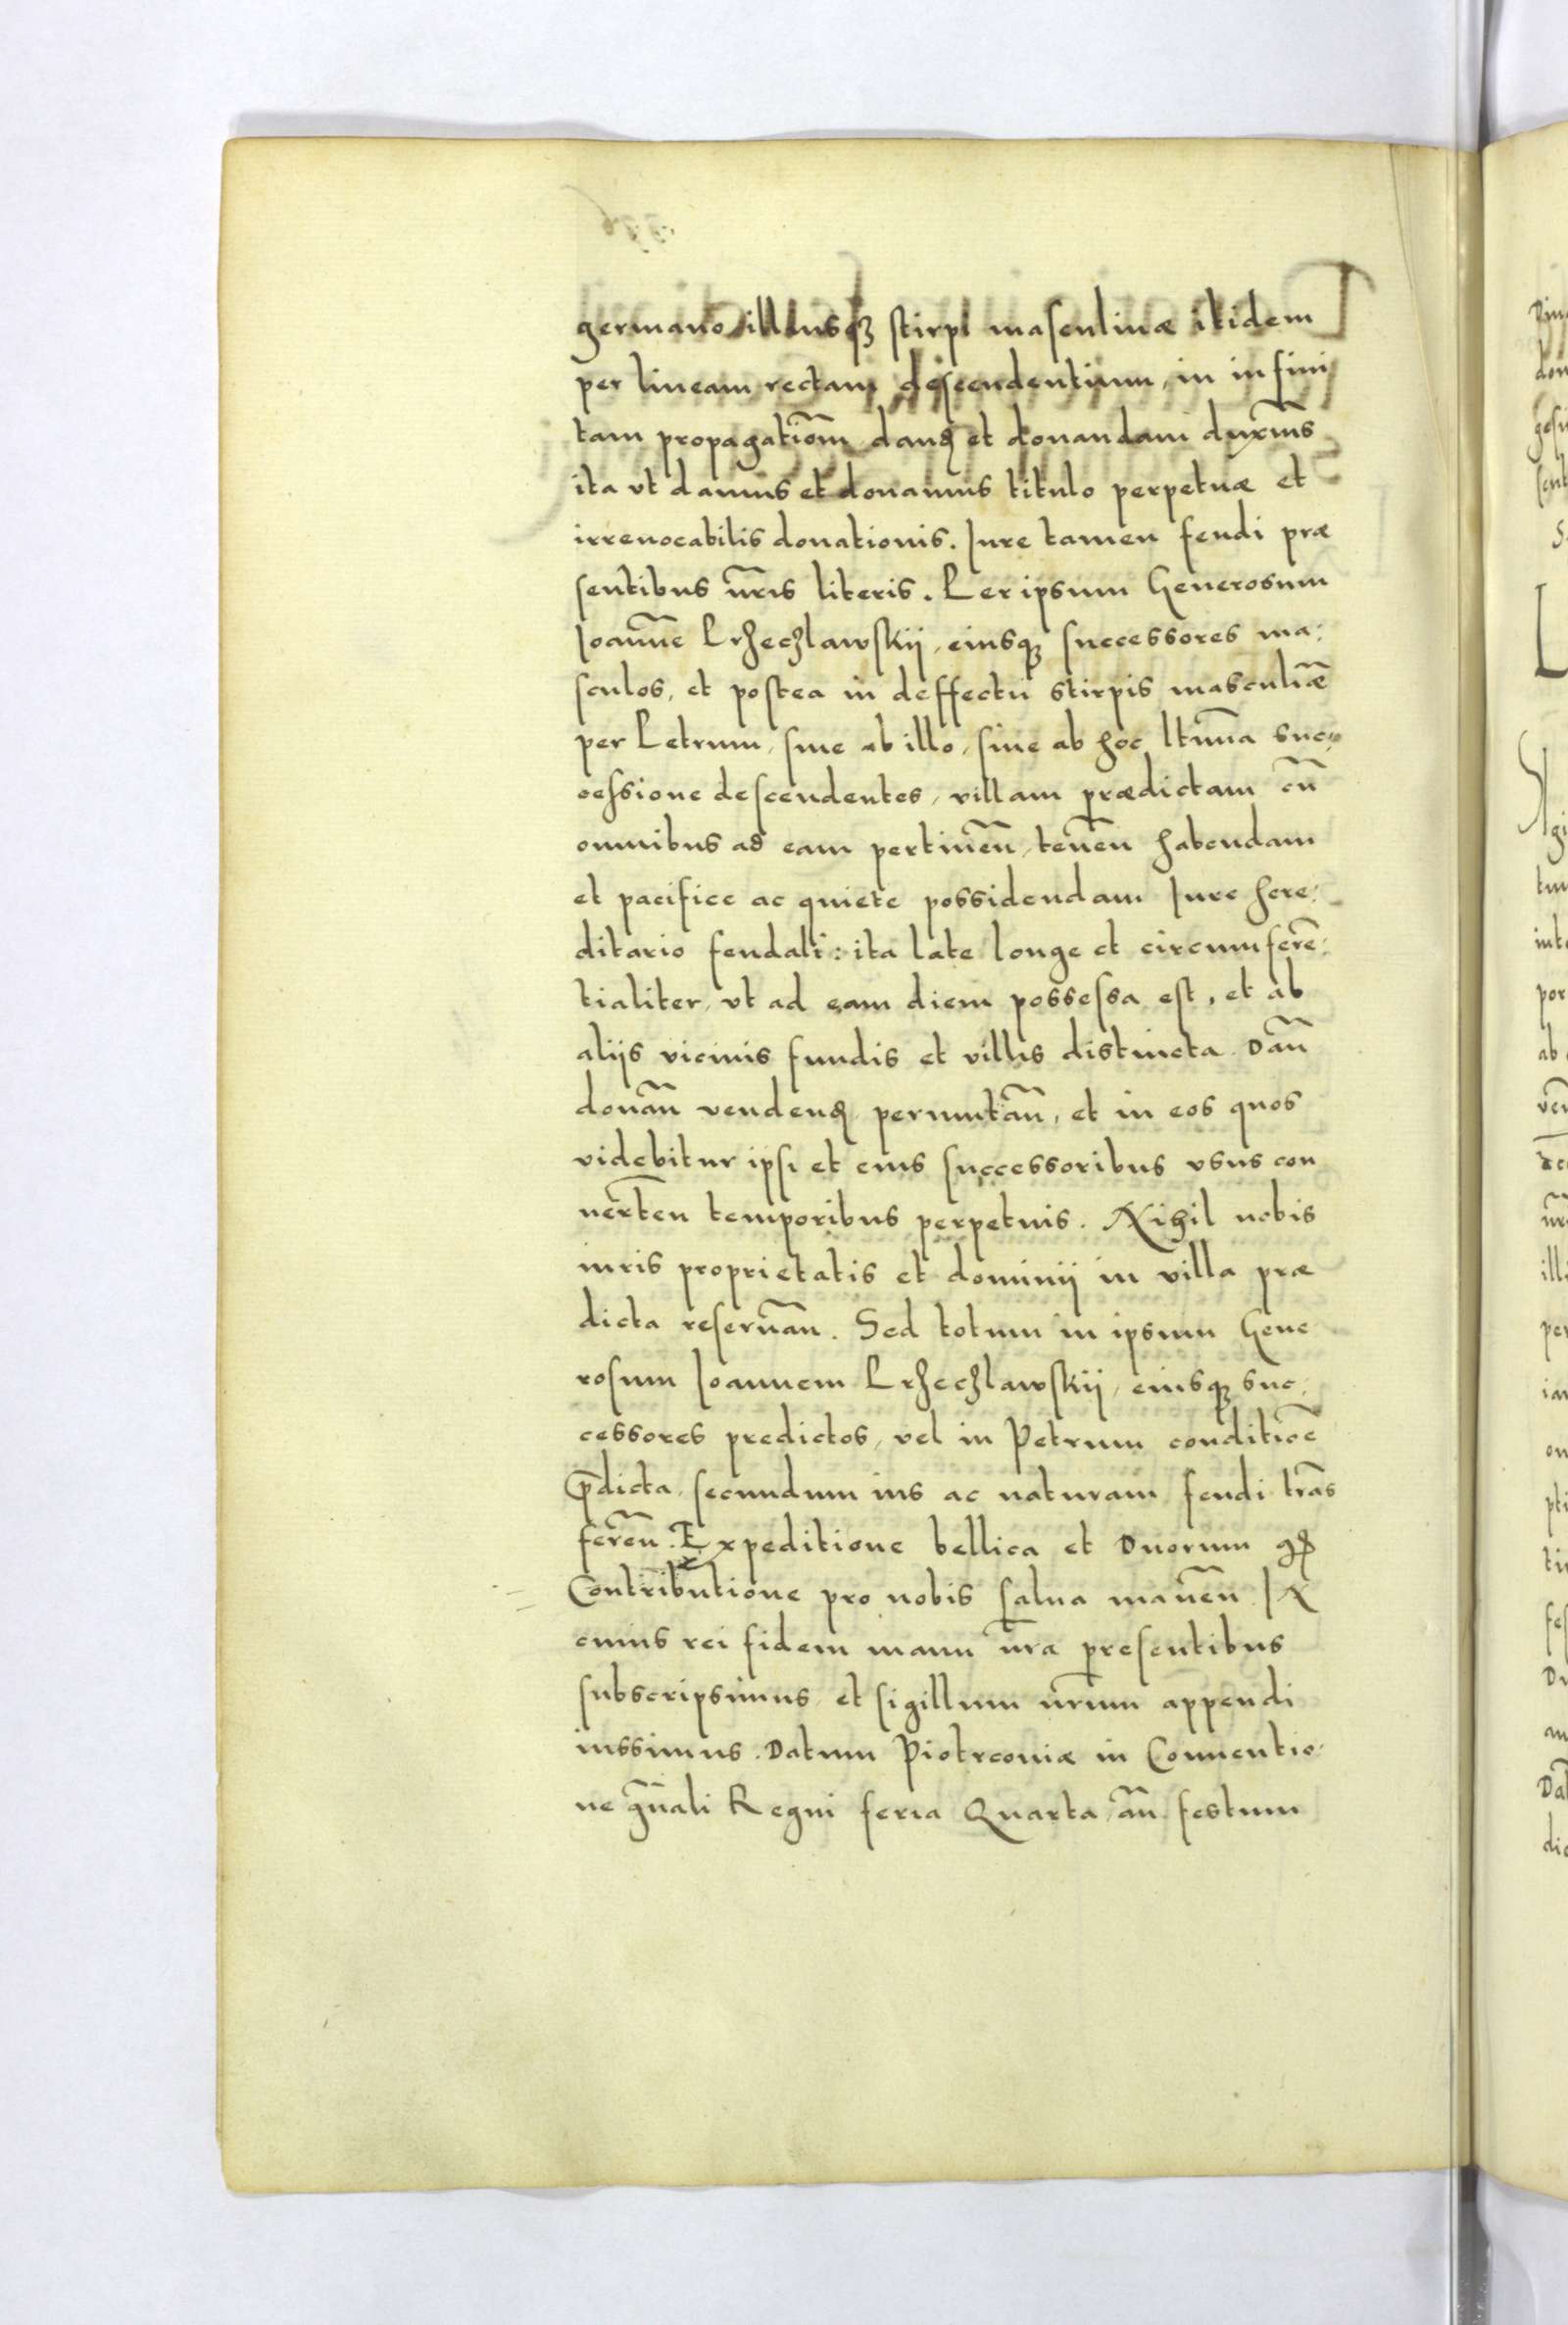 germano illiusqꝫ stirpi masculinæ itidem
per lineam rectam descendentium, in infini
tam propagatiõm dand et donandam duxim̃s
ita vt damus et donamus titulo perpetuæ et
irreuocabilis donationis. Iure tamen feudi præ
sentibus nr̃is literis. Per ipsum Generosum
Ioann̄e Prʒecʒlawskij, eiusqꝫ successores ma:
sculos, et postea in deffectu stirpis masculĩæ
per Petrum, siue ab illo, siue ab hoc ltim̃a suc:
cessione descendentes, villam prædictam cũ
omnibus ad eam pertineñ, teneñ habendam
et pacifice ac quiete possidendam Iure here:
ditario feudali: ita late longe et circumferẽ:
tialiter, vt ad eam diem possessa est, et ab
alijs vicinis fundis et villis distincta. Dañ
donañ vendend permutañ, et in eos quos
videbitur ipsi et eius successoribus vsus con
uerteñ temporibus perpetuis. Nihil nobis
iuris proprietatis et dominij in villa præ
dicta reseruañ. Sed totum in ipsum Gene
rosum Ioannem Prʒecʒlawskij, eiusqꝫ suc:
cessores predictos, vel in Petrum conditiõe
p̃dicta, secundum ius ac naturam feudi trãs
fereñ. Expeditione bellica et Duorum gꝝ
Contributione pro nobis salua maneñ. IN
cuius rei fidem manu nr̃a presentibus
subscripsimus et sigillum nr̃um appendi
iussimus. Datum Piotrconiæ in Conuentio:
ne gñali Regni feria Quarta añ festum